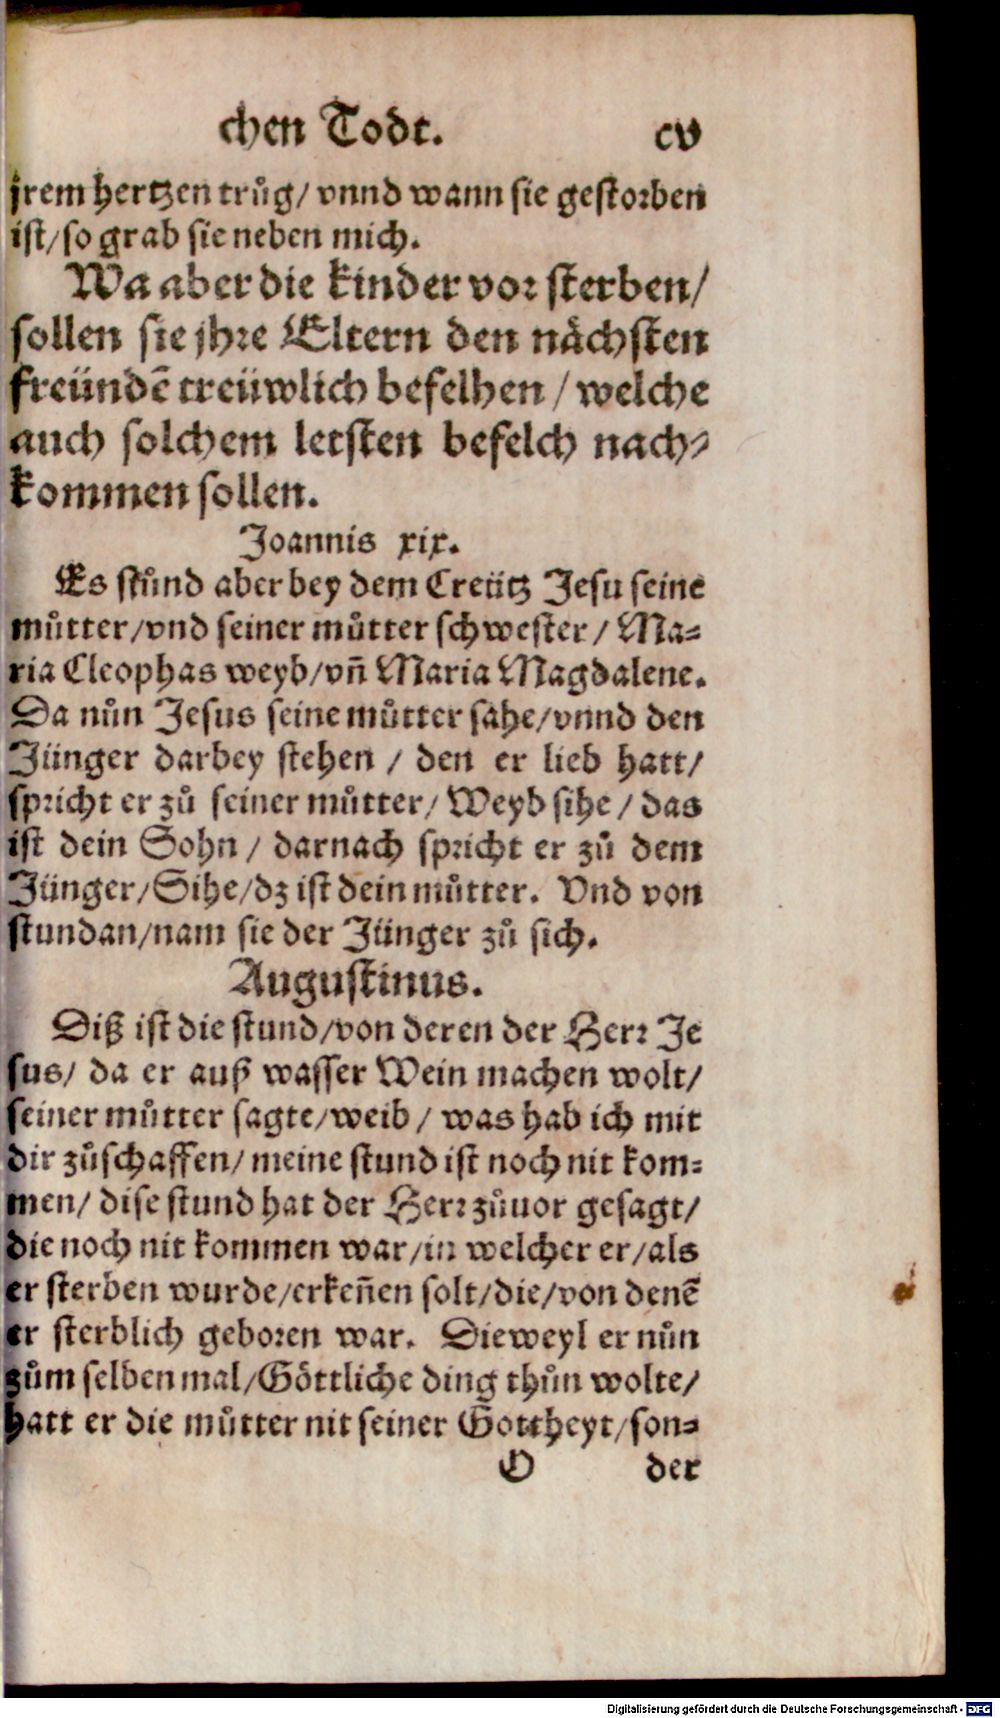 chen Todt. cv
jrem hertzen trůg/ vnnd wann sie gestorben
ist/ so grab sie neben mich.
Wa aber die kinder vor sterben/
sollen sie jhre Eltern den nächsten
freündẽ treüwlich befelhen / welche
auch solchem letsten befelch nach⸗
kommen sollen.
Joannis xix.
Es stůnd aber bey dem Creütz Jesu seine
můtter/vnd seiner můtter schwester / Ma⸗
ria Cleophas weyb/vñ Maria Magdalene.
Da nůn Jesus seine můtter sahe/vnnd den
Jünger darbey stehen / den er lieb hatt/
spricht er zů seiner můtter/ Weyb sihe / das
ist dein Sohn / darnach spricht er zů dem
Jünger/Sihe/dz ist dein můtter. Vnd von
stundan/nam sie der Jünger zů sich.
Augustinus.
Diß ist die stund/von deren der Herr Je
sus/ da er auß wasser Wein machen wolt/
seiner můtter sagte/weib / was hab ich mit
dir zůschaffen/ meine stund ist noch nit kom⸗
men/ dise stund hat der Herr zůuor gesagt/
die noch nit kommen war/in welcher er/als
er sterben wurde/erkeñen solt/die/von denẽ
er sterblich geboren war. Dieweyl er nůn
zům selben mal/Göttliche ding thůn wolte/
hatt er die můtter nit seiner Gottheyt/son⸗
O der
Digitalisierung gefördert durch die Deutsche Forschungsgemeinschaft - DFG